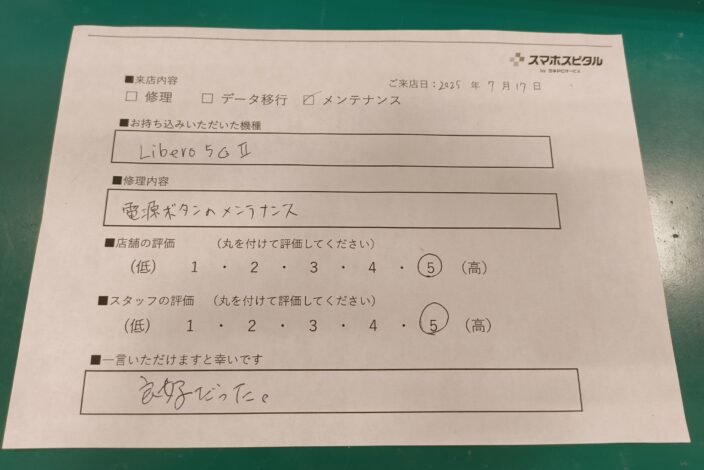 スマホスピタル
by 日本PCサービス
■来店内容
ご来店日：2025 年 7 月 17 日
□ 修理 □ データ移行 ☑ メンテナンス
■お持ち込みいただいた機種
Libero 5G II
■修理内容
電源ボタンのメンテナンス
■店舗の評価 （丸を付けて評価してください）
（低） 1 ・ 2 ・ 3 ・ 4 ・ 5 （高）
■スタッフの評価 （丸を付けて評価してください）
（低） 1 ・ 2 ・ 3 ・ 4 ・ 5 （高）
■一言いただけますと幸いです
良好だった。